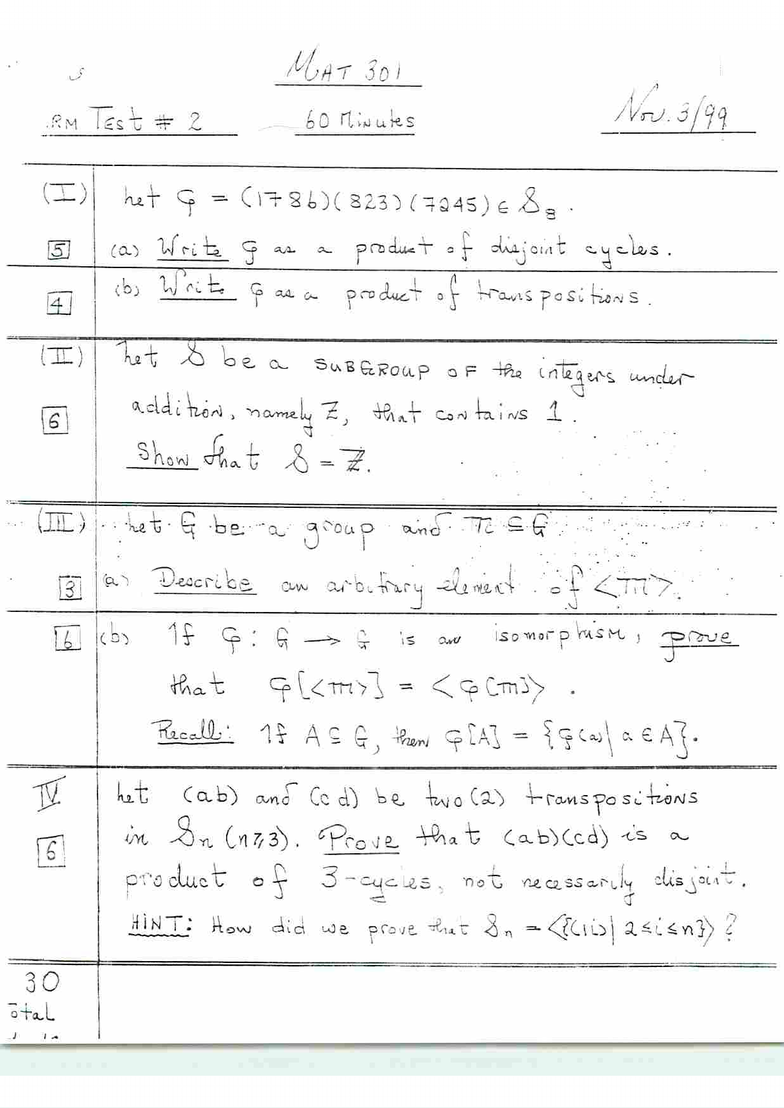 MAT 301
RM Test # 2 60 Minutes Nov. 3/99
(I) Let φ = (1786)(823)(7245) ∈ S₈.
5 (a) Write φ as a product of disjoint cycles.
4 (b) Write φ as a product of transpositions.
(II) Let S be a SUBGROUP OF the integers under
6 addition, namely Z, that contains 1.
Show that S = Z.
(III) Let G be a group and M ⊆ G
3 (a) Describe an arbitrary element of <M>.
6 (b) If φ : G → G is an isomorphism, prove
that φ[<M>] = <φ[M]>.
Recall: If A ⊆ G, then φ[A] = {φ(a) | a ∈ A}.
IV Let (ab) and (cd) be two (2) transpositions
6 in Sn (n≥3). Prove that (ab)(cd) is a
product of 3-cycles, not necessarily disjoint.
HINT: How did we prove that Sn = <{(1i) | 2≤i≤n}> ?
30
otal